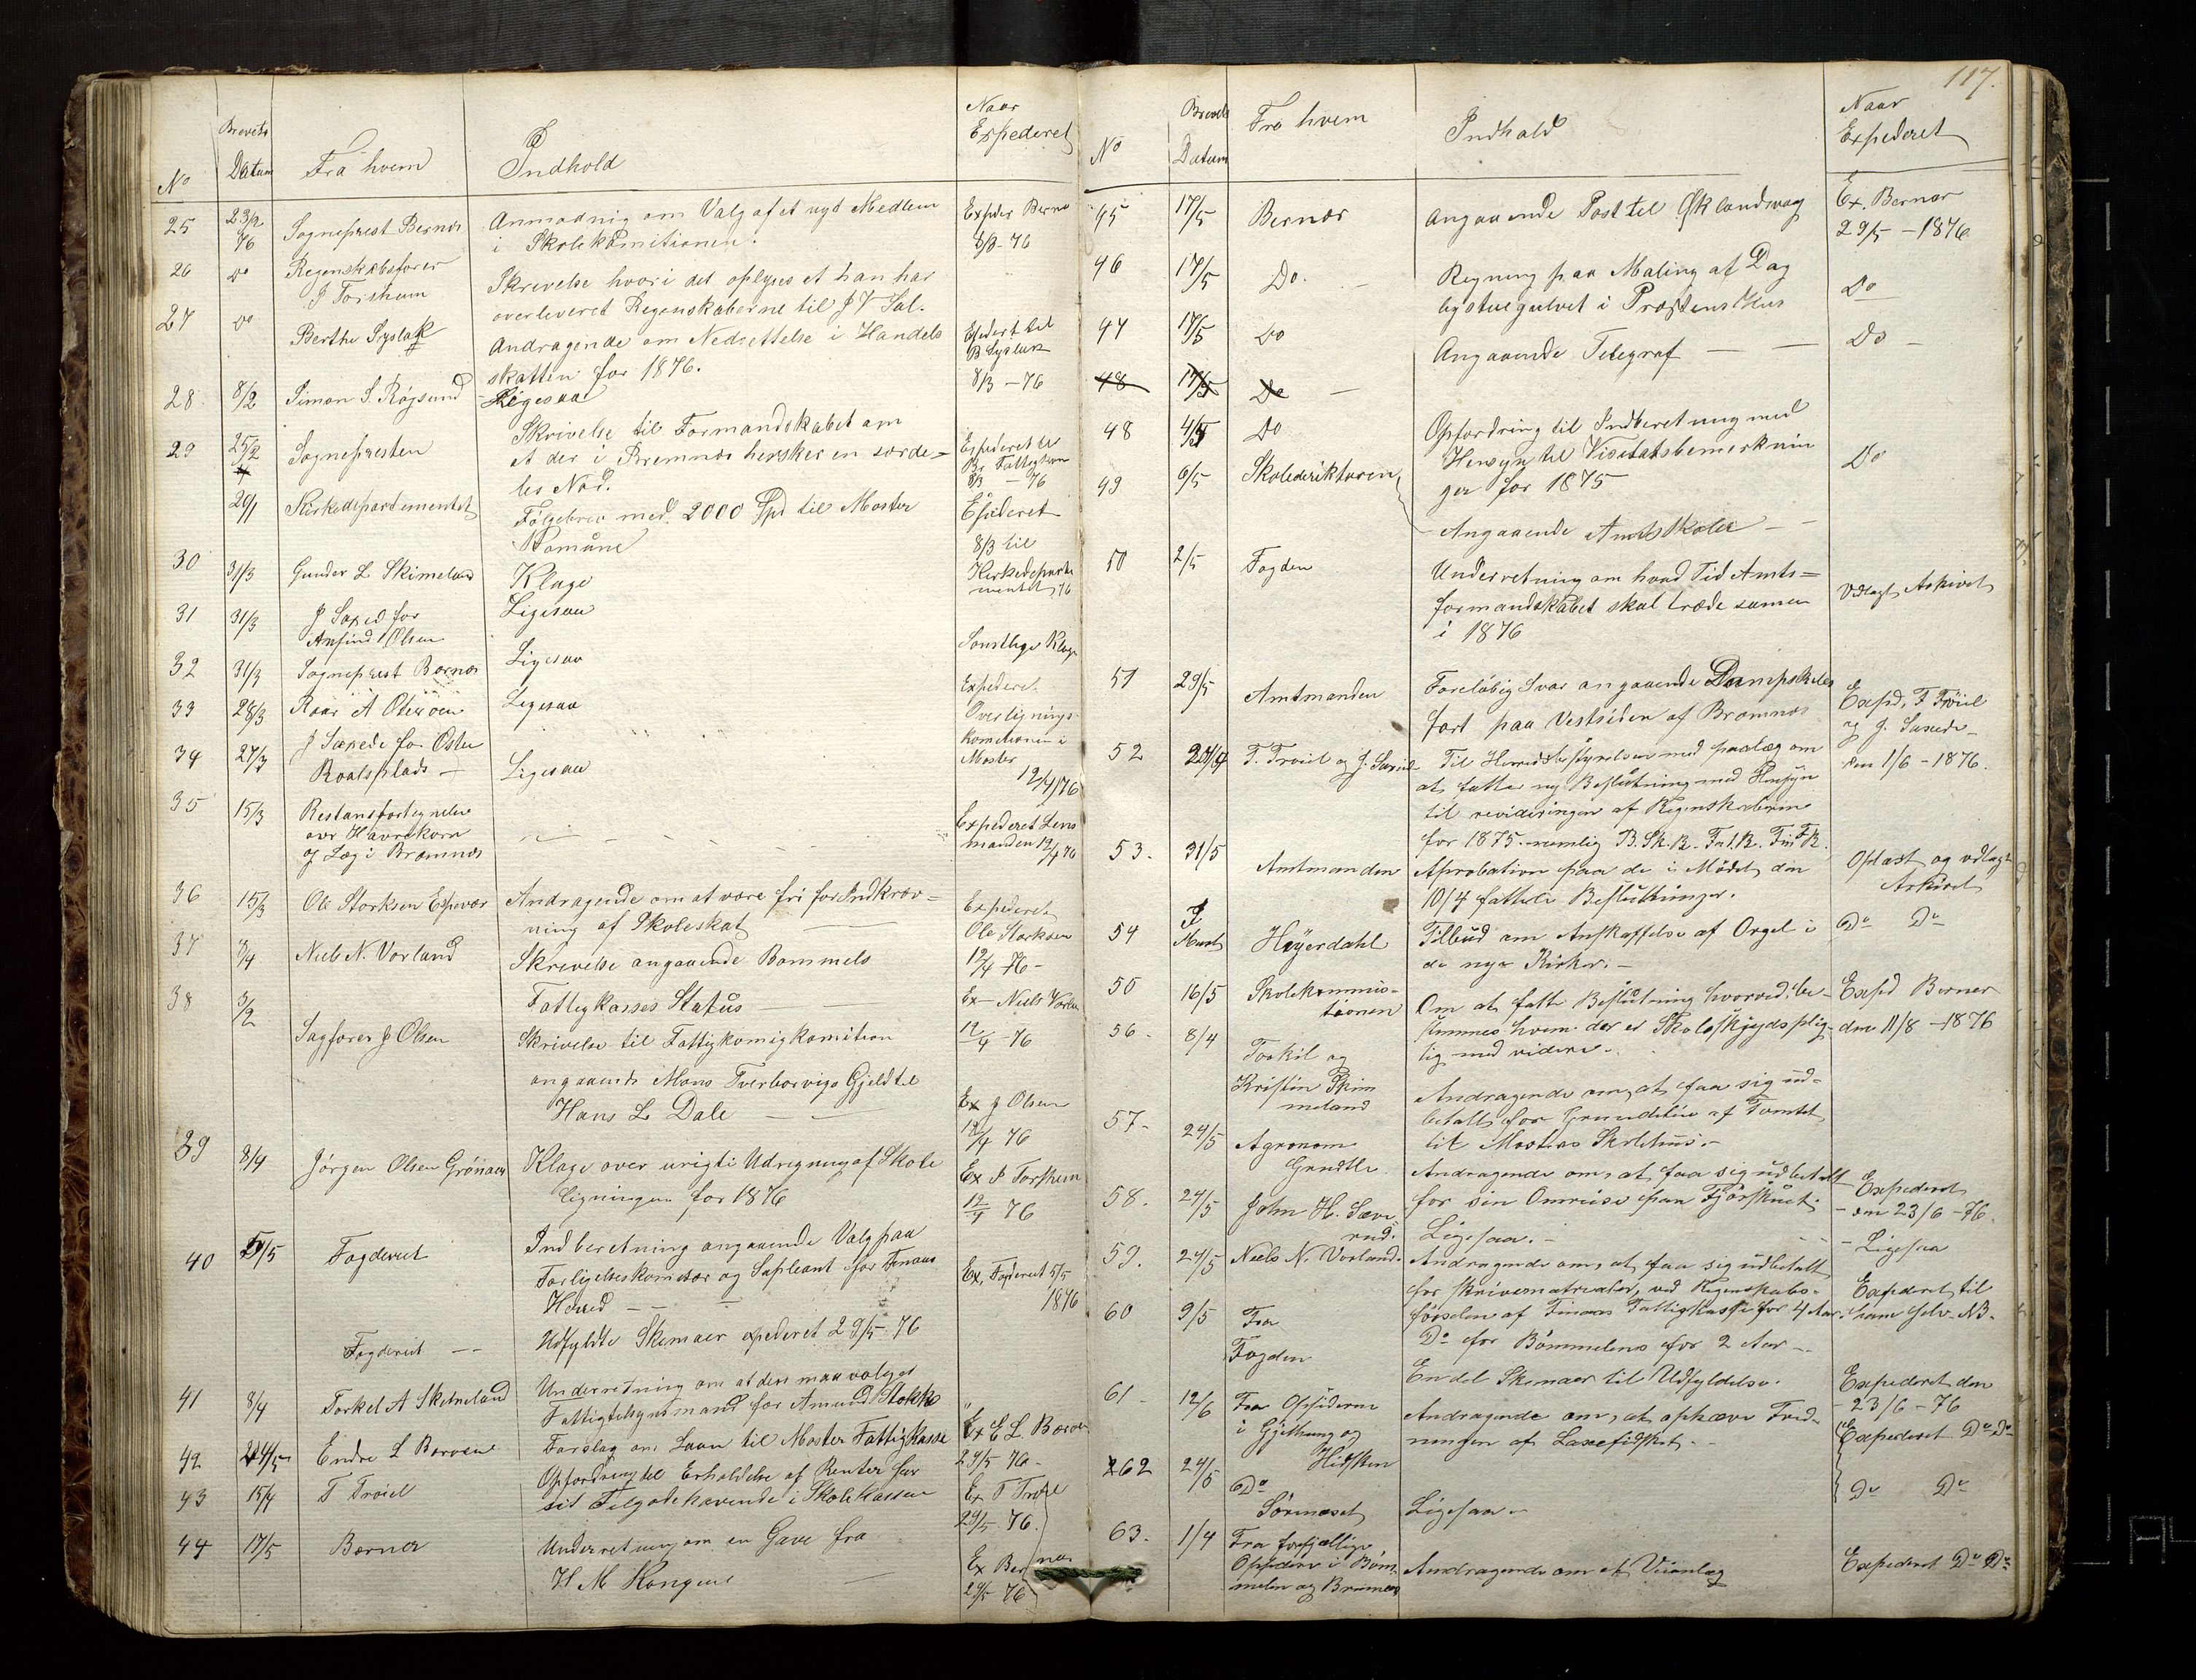 No
Brevets
Datum
Fra hvem
Indhold
Naar
Expederet
25
23/2
76
Sogneprest Bernær
Anmodnig om Valg af et nyt Medlem
i Skolekomitionen.
Exped Berne
8/3-76
26
Do
Regenskabsfører
J Torskum
Skrevelse hvori det oplyses et han har
overleveret Regenskaberne til J V Sal.
27
Do
Berthe Syslak
Andragende om Nedsettelse i Handels
skatten for 1876.
Expedert til
B Syslak
8/3 - 76
28
8/2
Simon S. Røgsund
Ligesaa
29
25/2
Sognepresten
Skrivelse til Formandskabet om
at der i Bremnes hersker en særde-
les Nød.
Expederet til
Br Fattigkom
8/3 - 76
20/1
Kirkedepartementet
Følgebrev med 2000 Spd til Moster
Komune
Expederet
8/3 til
Kirkedeparte
mentet 76
30
31/3
Gunder L Skimeland
Klage
31
31/3
J Sæxed for
Anfind Olsen
Ligesaa
32
31/3
Sogneprest Bærnær
Ligesaa
Samtlige Klager
33
28/3
Roar A Olsen
Ligesaa
Expederet
Overlignings
Komitionen i
Moster
12/4/76
34
27/3
J Sæxede for Østen
Roalsplads -
Ligesaa
35
15/3
Restansfortegnelse
over Havrekorn
og Læg i Bremnes
Expederet Lens
manden 12/4 76
36
15/3
Ole Storksen Espevær
Andragende om at være fri for Indkræv=
ning af Skoleskat
Expederet
Ole Storksen
12/4 76-
37
3/4
Niels N. Vorland
Skrevelse angaaende Bømmels
Fattigkasses Status
Ex - Niels Vorla
12/4 - 76
38
3/2
Sagfører J Olsen
Skrivelse til Fattigkomigkomition
angaaende Mons Tverborvigs Gjeld til
Hans L Dale
Ex J Olsen
12/4 76
39
8/4
Jørgen Olsen Grønaas
Klage over urigti Udregning af Skole
ligningen for 1876
Ex J Torskum
12/4 76
40
5/5
Fogderiet
Indberetning angaaende Valg paa
Forligelseskomisær og Supleant for Finaas
Herred
Ex, Fogderiet 5/5
1876
Fogderiet
Udfyldte Skemaer expederet 29/5 76
41
8/4
Torkel A Skimeland
Underretning om at der maa vælges
Fattigtilsynsmand for Amund Stokke
42
24/5
Endre L Børøen
Forslag om Laan til Moster Fattigkasse
Ex E L Børøen
29/5 76-
43
15/4
T Trøiel
Opfordring til Erholdelse af Renter for
sit Tilgodehavende i Skolekassen
Ex T Trøiel
29/5. 76.
44
17/5
Bærner
Underretning om en Gave fra
H M Kongene
Ex Bernær
29/5 76
117.
No
Brevets
Datum
Fra hvem
Indhold
Naar
Expederet
45
17/5
Bernær
Angaaende Post til Øklandsvag
Ex. Bernær
29/5 - 1876
46
17/5
Do.
Regning paa Maling af Dag
ligstuegulvet i Præstens Hus
Do
47
17/5
Do
Angaaende Telegraf
Do
48
17/5
Do
48
4/5
Do
Opfordring til Indberetning med
Hensyn til Visitatsbemerknin
ger for 1875
Do
49
6/5
Skoledirektøren
Angaaende Amtsskoler
50
2/5
Fogden
Underretning om hvad Tid Amts=
formandskabet skal træde samen
i 1876
Vedlagt Arkivet
51
29/5
Amtmanden
Foreløbig Svar angaaende Dampskibs
fart paa Vestsiden af Bremnes
Exspd, T Trøiel
og J. Sæxede
den 1/6 - 1876.
52
T. Trøiel og J. Sæxed
Til Herredsbestyrelsen med paalæg om
at fatte ny Beslutning med Hensyn
til revideringen af Regnskaberne
for 1875. nemlig B. Sk. K. F.
53.
31/5
Amtmanden
Aprobation paa de i Mødet den
10/4 fattede Beslutninger.
Oplæst og vedlagt
Arkivet
54
Marts
Høyerdahl
Tilbud om Anskaffelse af Orgel i
de nye Kirker. -
Do Do
55
16/5
Skolekommis-
tionen
Om at fatte Beslutning hvorved be-
stemmes hvem der er Skoleskydsplig-
tig med videre.
Exspd Berner
den 11/8 - 1876
56-
8/4
Torkil og
Kristin Skim
meland
Andragende om, at faa sig ud-
betalt for Grundleie af Tomten
til Mosters Skolehus. -
57-
24/5
Agronom
Grudtle
Andragende om, at faa sig udbetalt
for sin Omreise paa Fjørskuet.
Expederet
den 23/6 - 76.
58.
24/5
John H. Sæve
rud.
Ligesaa. -
Ligesaa
59.
24/5
Niels N. Vorland.
Andragende om, at faa sig udbetalt
for Skrivematrialer, ved Regnskabs-
førselen af Finaas Fattigkasse for 4 Aar.
Do for Bømmelens for 2 Aar -
Expederet til
ham selv. NB.
60
9/5
Fra
Fogden
En del Skemaer til Udfyldelse.
Expederet den
23/6 - 76
61
12/6
Fra Opsiderne
i Gjetung og
Hidsken
Andragende om, at ophæve Fred-
ningen af Laxefiskeri. -
Expederet Do Do
62
24/5
Do
Sørneset
Ligesaa -
Do Do
63.
1/4
Fra forsjellige
Opsidere i Bøm
melen og Bremnes
Andragende om et Veianlæg
Expederet Do Do